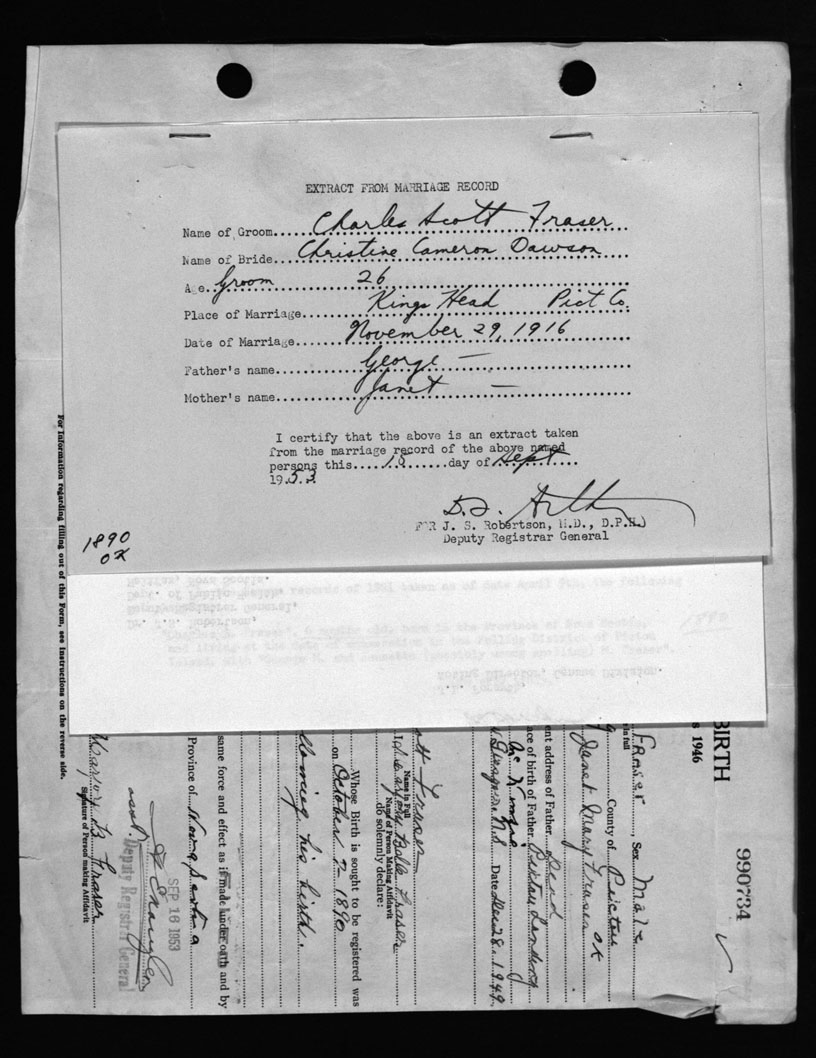 EXTRACT FROM MARRIAGE RECORD
Name of Groom.... Charles Scott Fraser
Name of Bride... Christine Cameron Dawson
Age. Groom 26
Place of Marriage.... Kings Head Pict Co.
Date of Marriage.... November 29, 1916
Father's name.... George —
Mother's name.... Janet —
I certify that the above is an extract taken
from the marriage record of the above named
persons this..... 15 ......day of Sept ....
1953
FOR J. S. Robertson, M.D., D.P.H.
Deputy Registrar General
1890
OK
For Information regarding filling out of this Form, see Instructions on the reverse side.
BIRTH
1946
990734
Fraser, Sex Male
in full
County of Pictou
Janet Mary Fraser OK
ent address of Father Dead
ace of birth of Father Pictou Landing
Date Dec 28, 1949
ott Fraser
Name in Full
I, Marjory Belle Fraser
Name of Person Making Affidavit
do solemnly declare:
Whose Birth is sought to be registered was
on October 7 - 1890
llowing his birth.
same force and effect as if made under oath and by
Province of Nova Scotia
SEP 16 1953
asst. Deputy Registrar General
Marjory B Fraser
Signature of Person making Affidavit